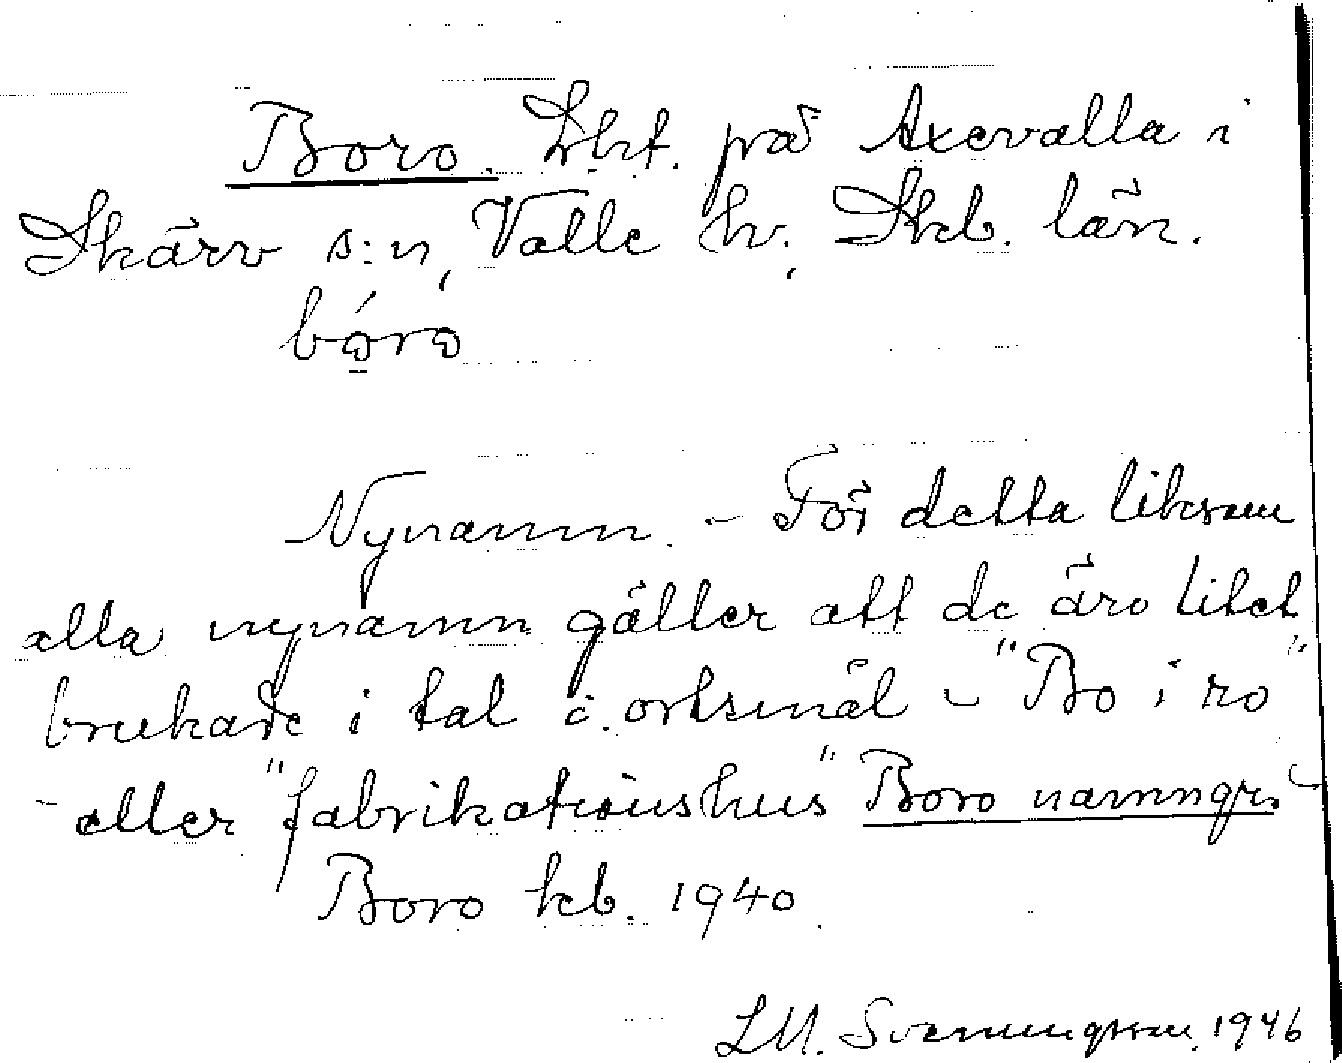 Boro. Lht. på Axevalla i
Skärv s:n, Valle hd. Skb. län.
bórò
Nynamn. - För detta liksom
alla nynamn gäller att de äro litet
brukade i tal i ortsmål - "Bo i ro"
- eller "fabrikationshus" Boro namngr. -
Boro kb. 1940.
LM. Svenungsson 1946